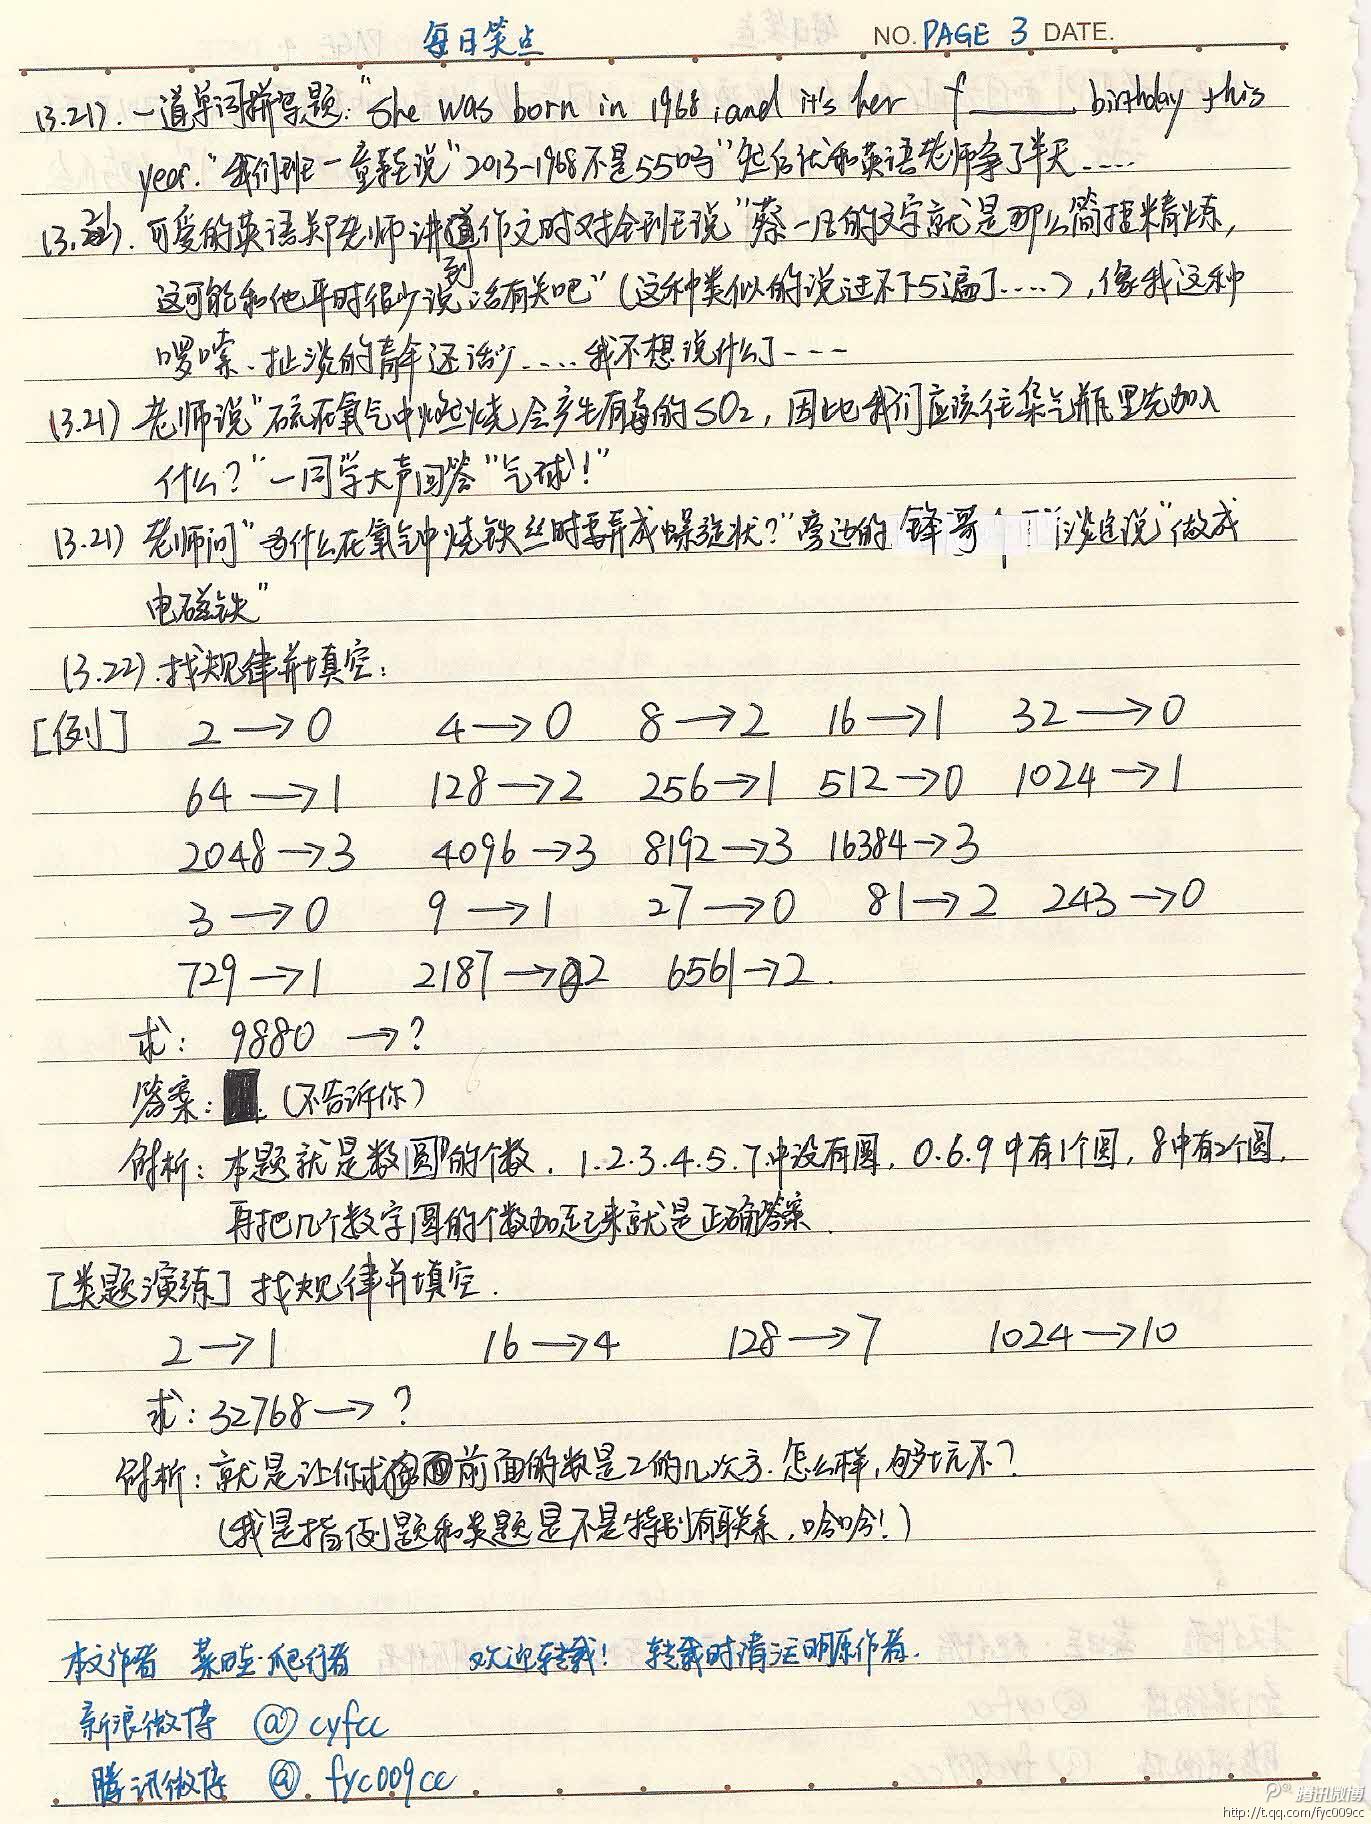 每日笑点 NO. PAGE 3 DATE.
(3.21). 一道单词拼写题: "she was born in 1968, and it's her f______ birthday this
year. "我们班一童鞋说"2013-1968不是55吗"然后他和英语老师争了半天.....
(3.21). 可爱的英语郑老师讲到作文时对全班说"蔡一凡的文字就是那么简捷精炼,
这可能和他平时很少说话有关吧"(这种类似的说过不下5遍了....),像我这种
啰嗦、扯淡的青年还话少....我不想说什么了----
(3.21) 老师说"硫在氧气中燃烧会产生有毒的SO2, 因此我们应该往集气瓶里先加入
什么?"一同学大声回答"气球!"
(3.21) 老师问"为什么在氧气中烧铁丝时要弄成螺旋状?"旁边的锋哥 淡定说"做成
电磁铁"
(3.22).找规律并填空:
[例] 2→0 4→0 8→2 16→1 32→0
64→1 128→2 256→1 512→0 1024→1
2048→3 4096→3 8192→3 16384→3
3→0 9→1 27→0 81→2 243→0
729→1 2187→2 6561→2.
求: 9880→?
答案: (不告诉你)
解析: 本题就是数"圆"的个数. 1.2.3.4.5.7.中没有圆, 0.6.9中有1个圆, 8中有2个圆.
再把几个数字圆的个数加起来就是正确答案.
[类题演练] 找规律并填空.
2→1 16→4 128→7 1024→10
求: 32768→?
解析: 就是让你求前面的数是2的几次方. 怎么样, 够坑不?
(我是指例题和类题是不是特别有联系, 哈哈!)
本文作者 菜畦·爬行者 欢迎转载! 转载时请注明原作者.
新浪微博 @cyfcc
腾讯微博 @fyc009cc
腾讯微博
http://t.qq.com/fyc009cc